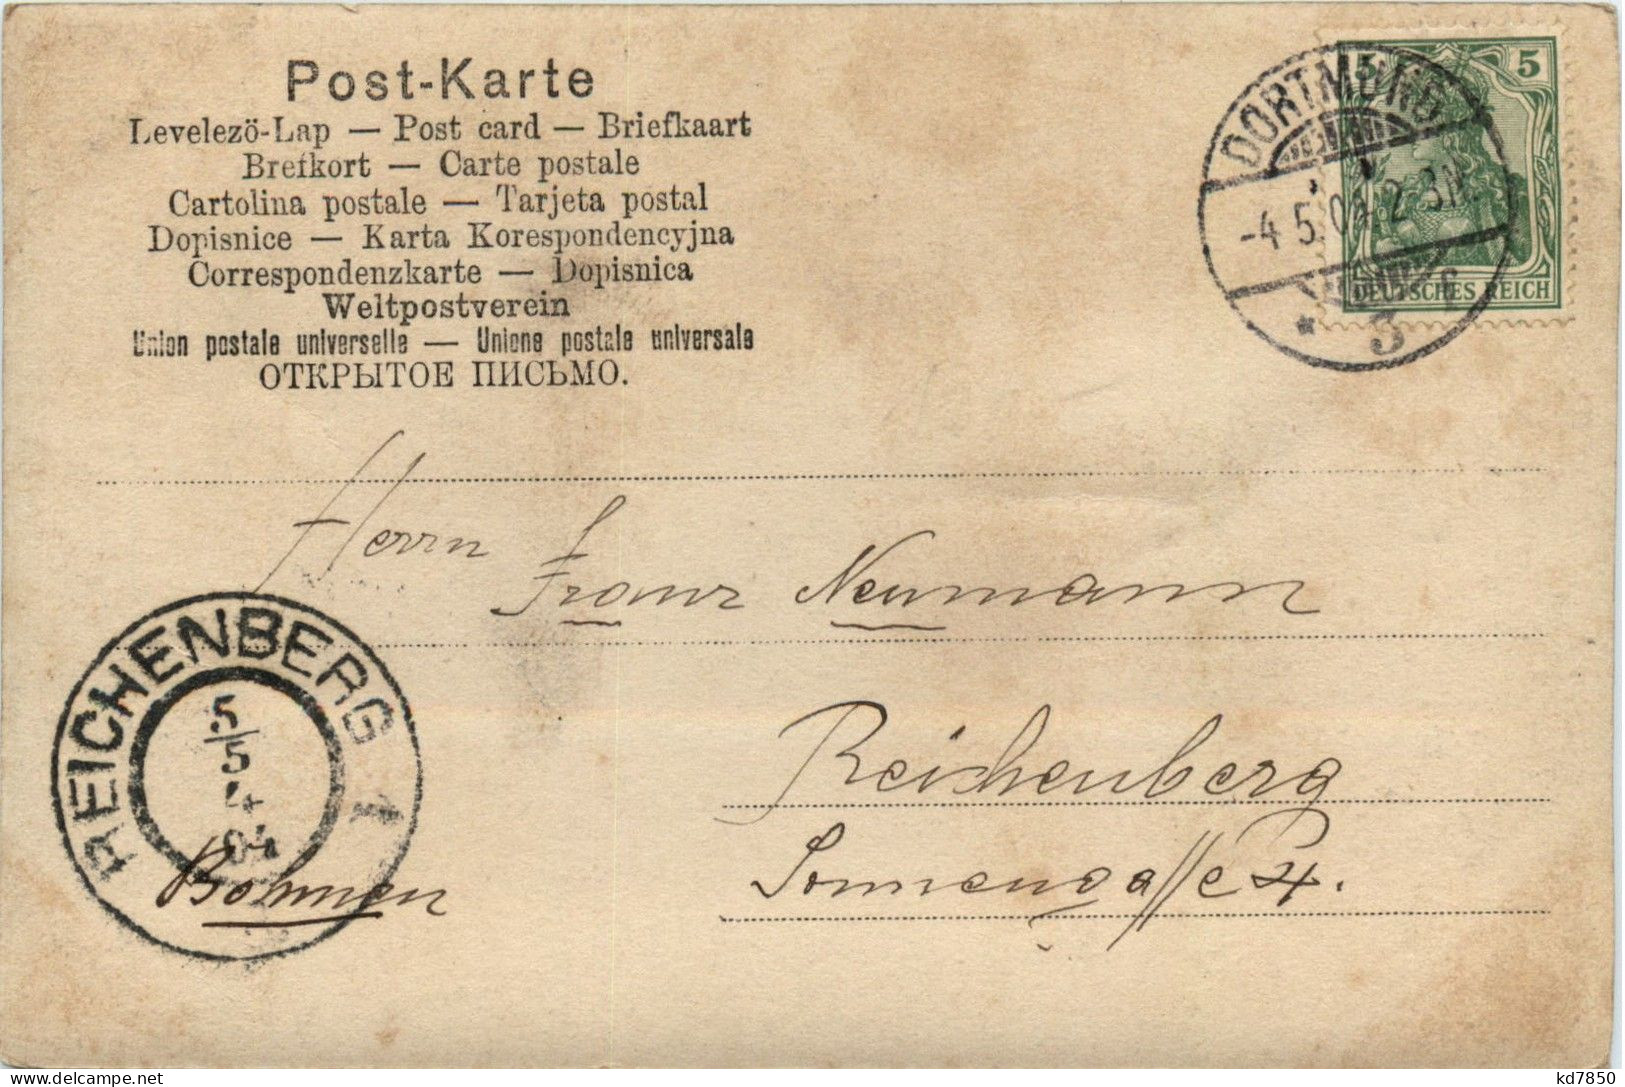 Post-Karte
Levelezö-Lap — Post card — Briefkaart
Brefkort — Carte postale
Cartolina postale — Tarjeta postal
Dopisnice — Karta Korespondencyjna
Correspondenzkarte — Dopisnica
Weltpostverein
Union postale universelle — Unione postale universale
ОТКРЫТОЕ ПИСЬМО.
DORTMUND
-4.5.04. 2-3N.
* 5 c
5 5
DEUTSCHES REICH
Herrn
Franz Neumann
Reichenberg
Sonnengasse 24.
Böhmen
REICHENBERG 1
5/5
4
04
kd7850